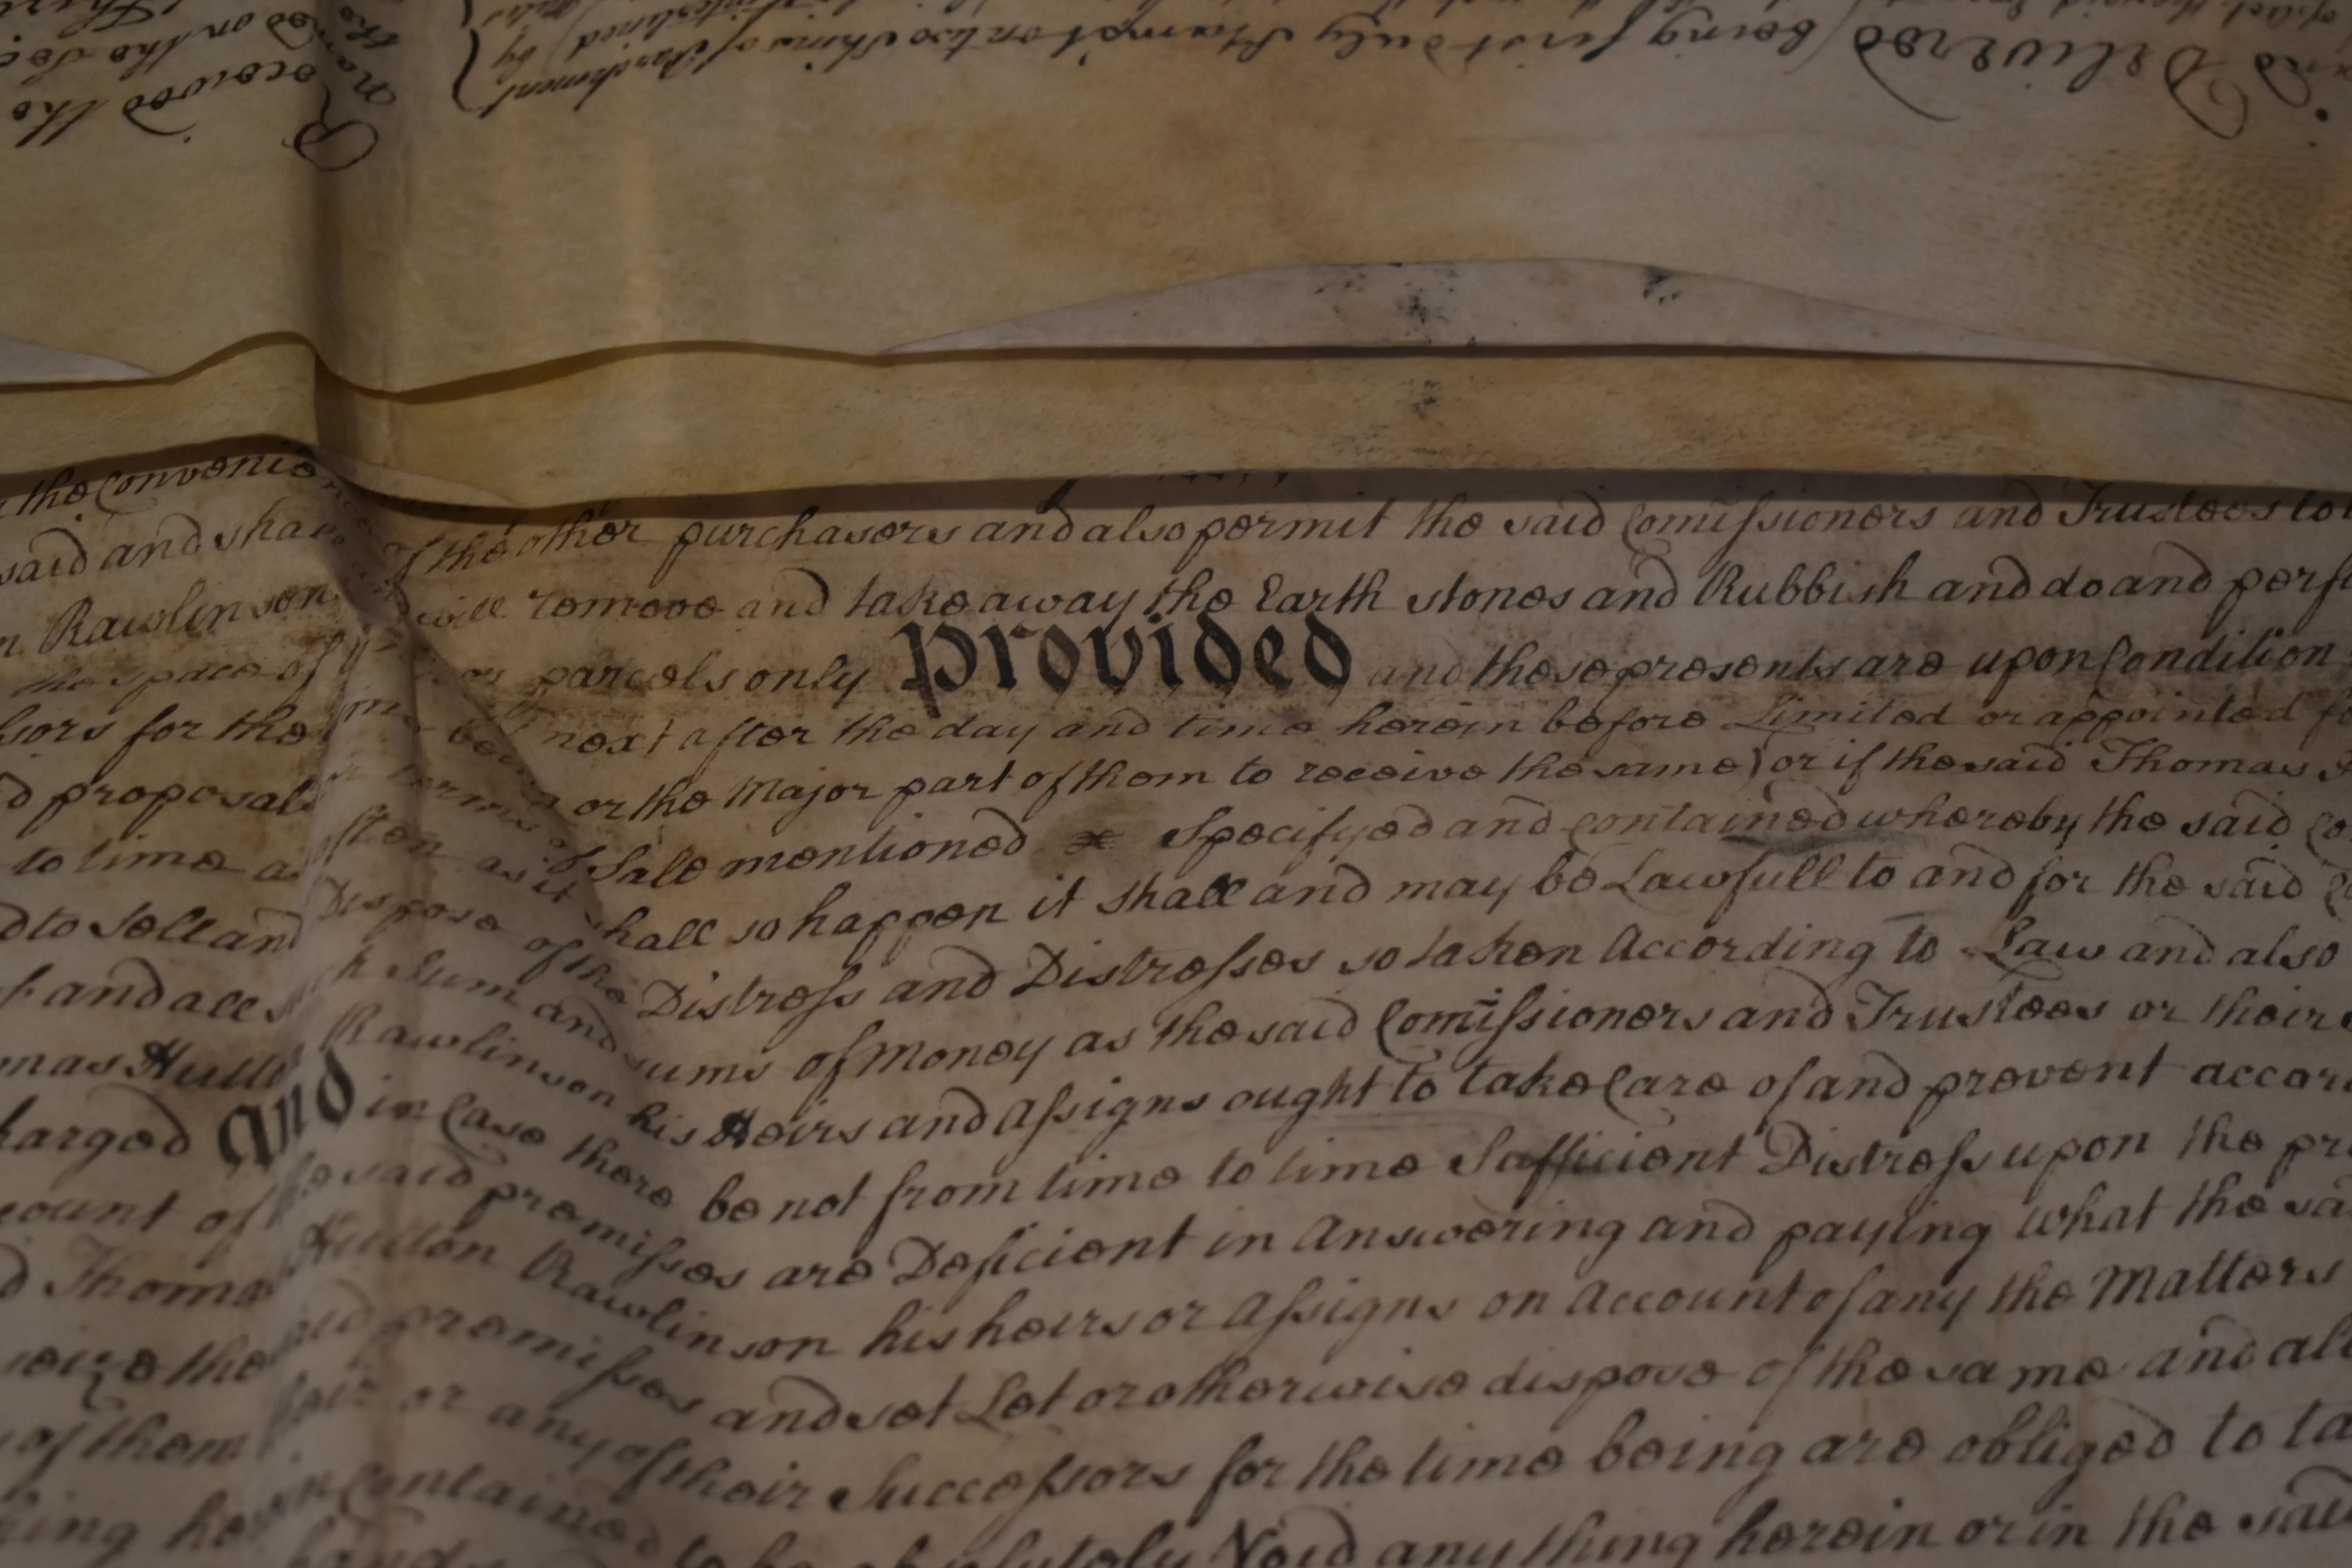 and Delivered (being first duly Stampt on two Skins of Parchment
interlined by
Received the
the Convenience of the other purchasers and also permit the said Comissioners and Trustees to
said and shall and will remove and take away the Earth stones and Rubbish and do and perf
Rawlinson parcels only Provided and these presents are upon Condition
the space of next after the day and time herein before Limited or appointed f
ssors for the time being or the Major part of them to receive the same) or if the said Thomas
d proposals or terms of Sale mentioned Specifyed and contained whereby the said Co
to time as often as it shall so happen it shall and may be Lawfull to and for the said C
d to Sell and Dispose of the Distress and Distresses so taken According to Law and also
and all such Sum and sums of Money as the said Comissioners and Trustees or their
mas Hutton Rawlinson his Heirs and Assigns ought to take Care of and prevent accor
harged And in Case there be not from time to time Sufficient Distress upon the pr
count of the said premisses are Deficient in Answering and paying what the sa
d Thomas Hutton Rawlinson his heirs or Assigns on Account of any the Matters
seize the said premisses and set Let or otherwise dispose of the same and al
of them their or any of their Successors for the time being are obliged to ta
herein Contained to be absolutely Void any thing herein or in the said